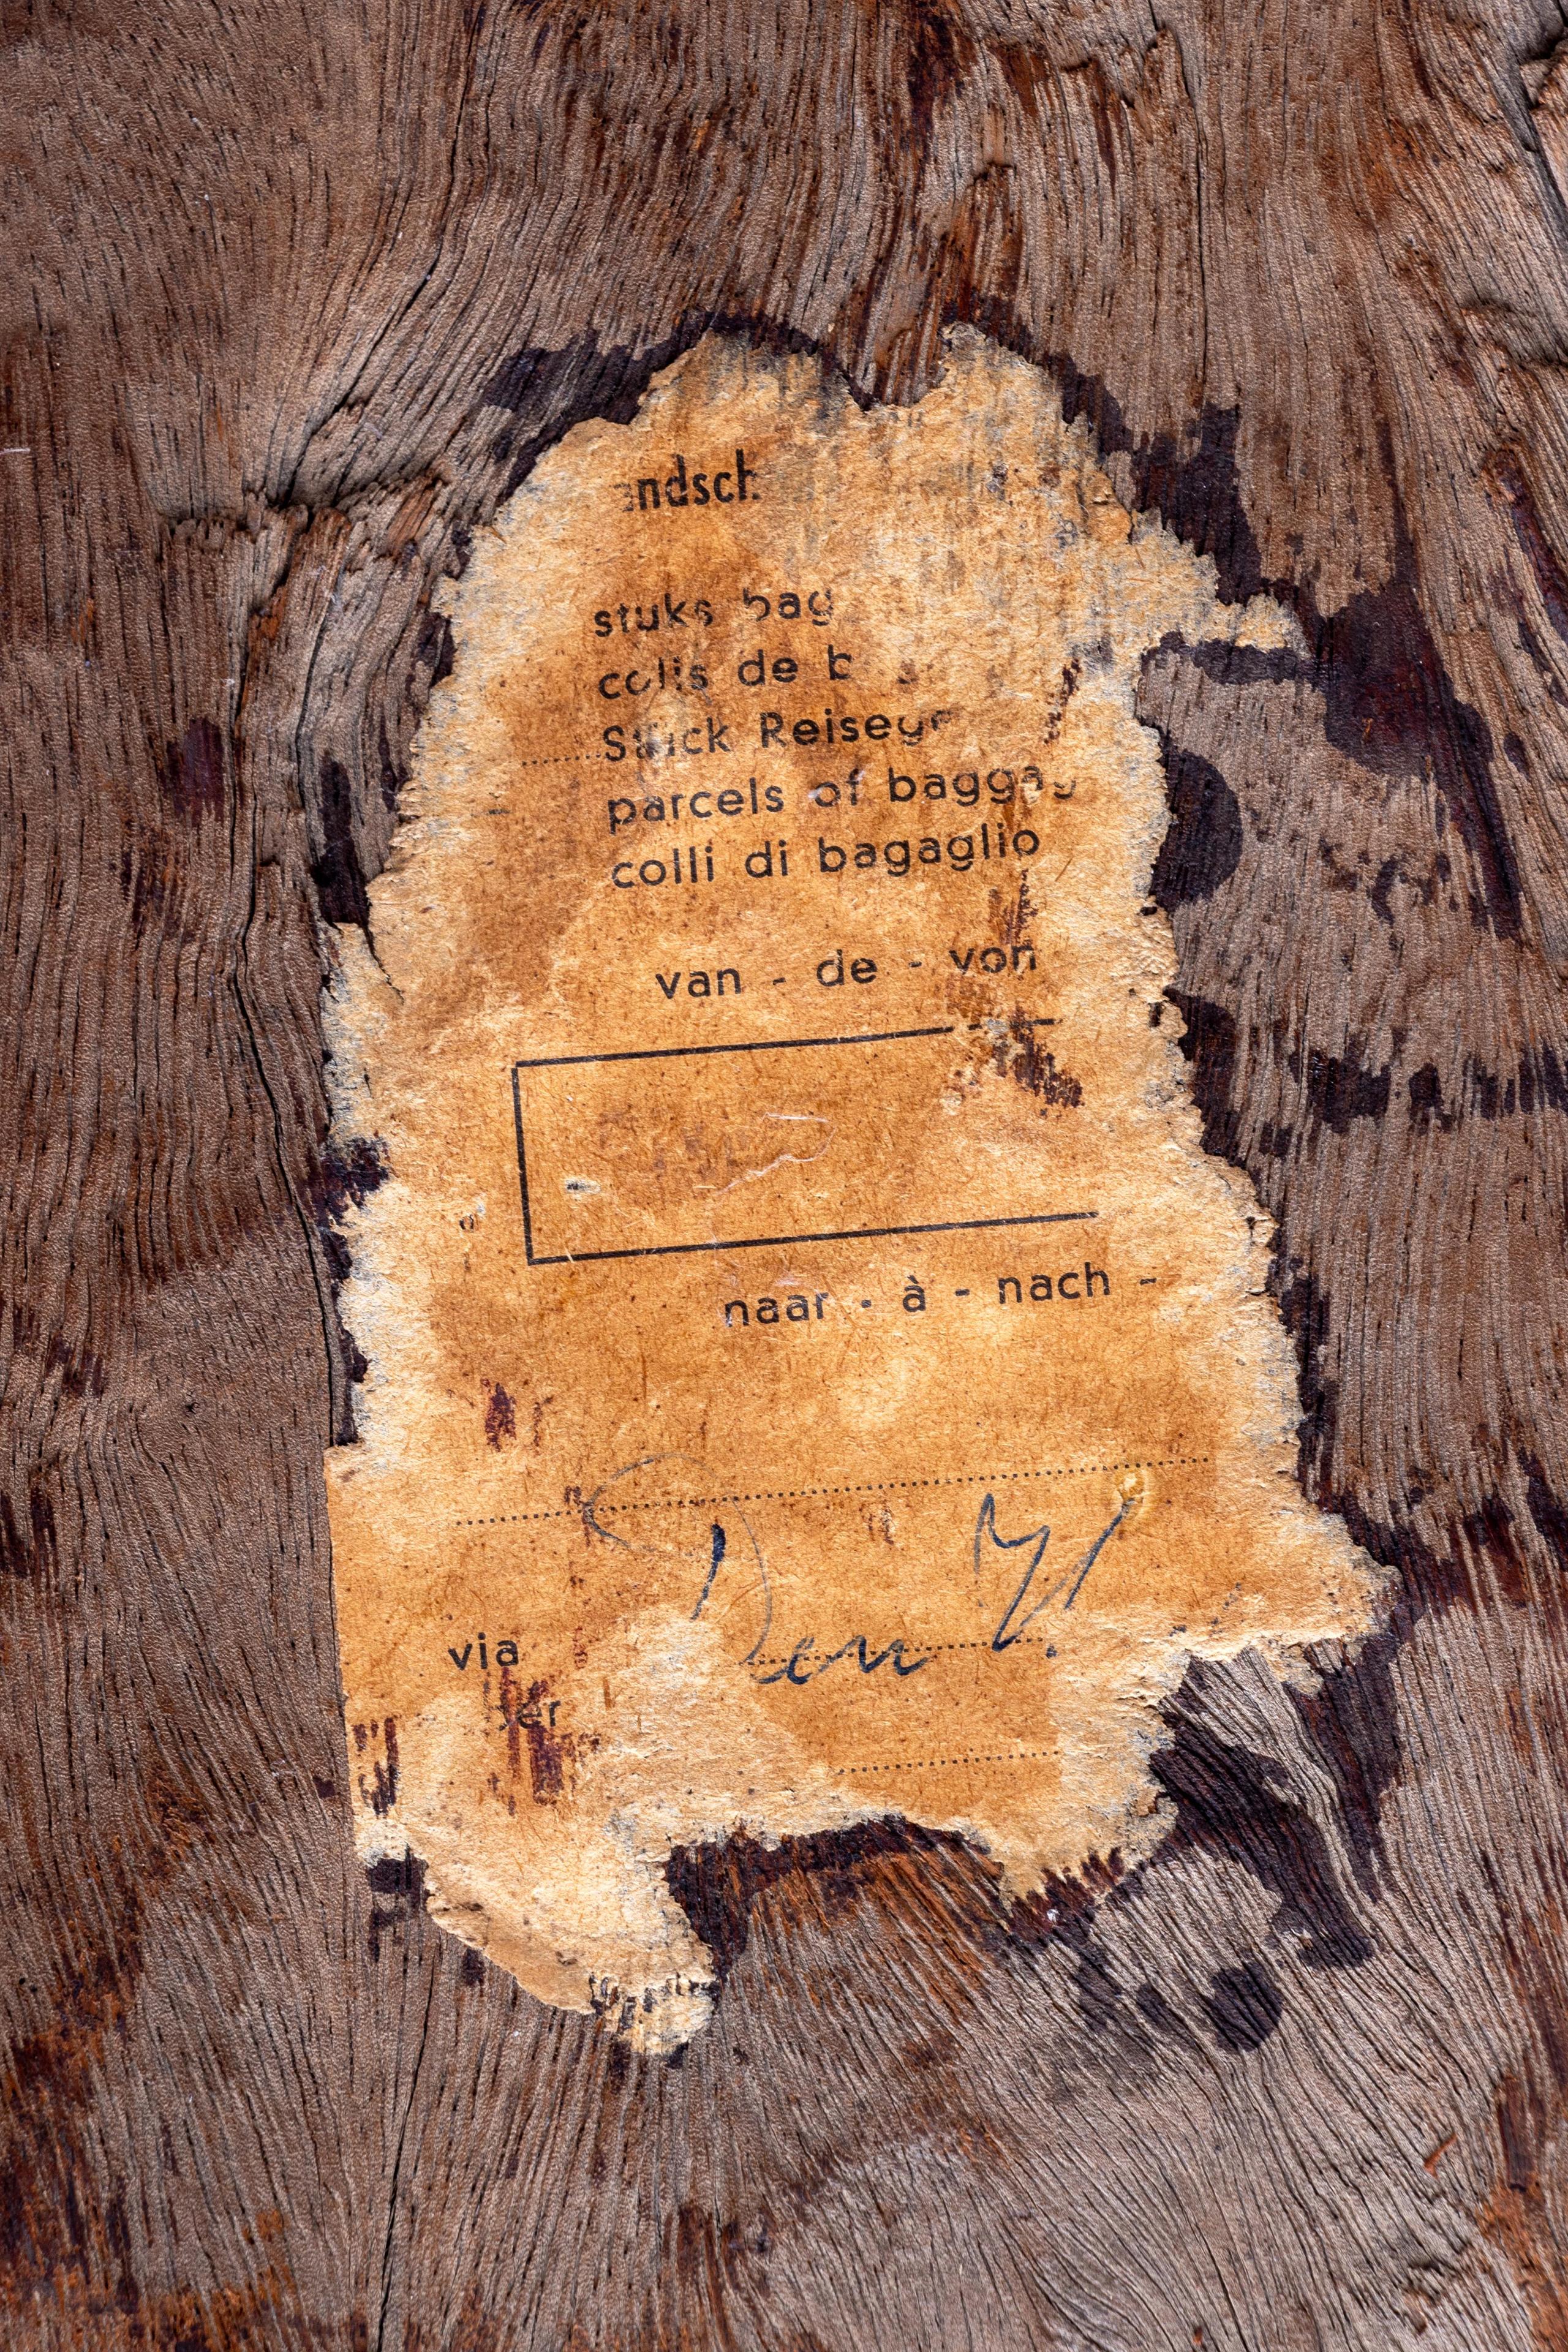 ndsch
stuks bag
colis de b
Stück Reisege
parcels of baggag
colli di bagaglio
van - de - von
naar - à - nach -
Den
via